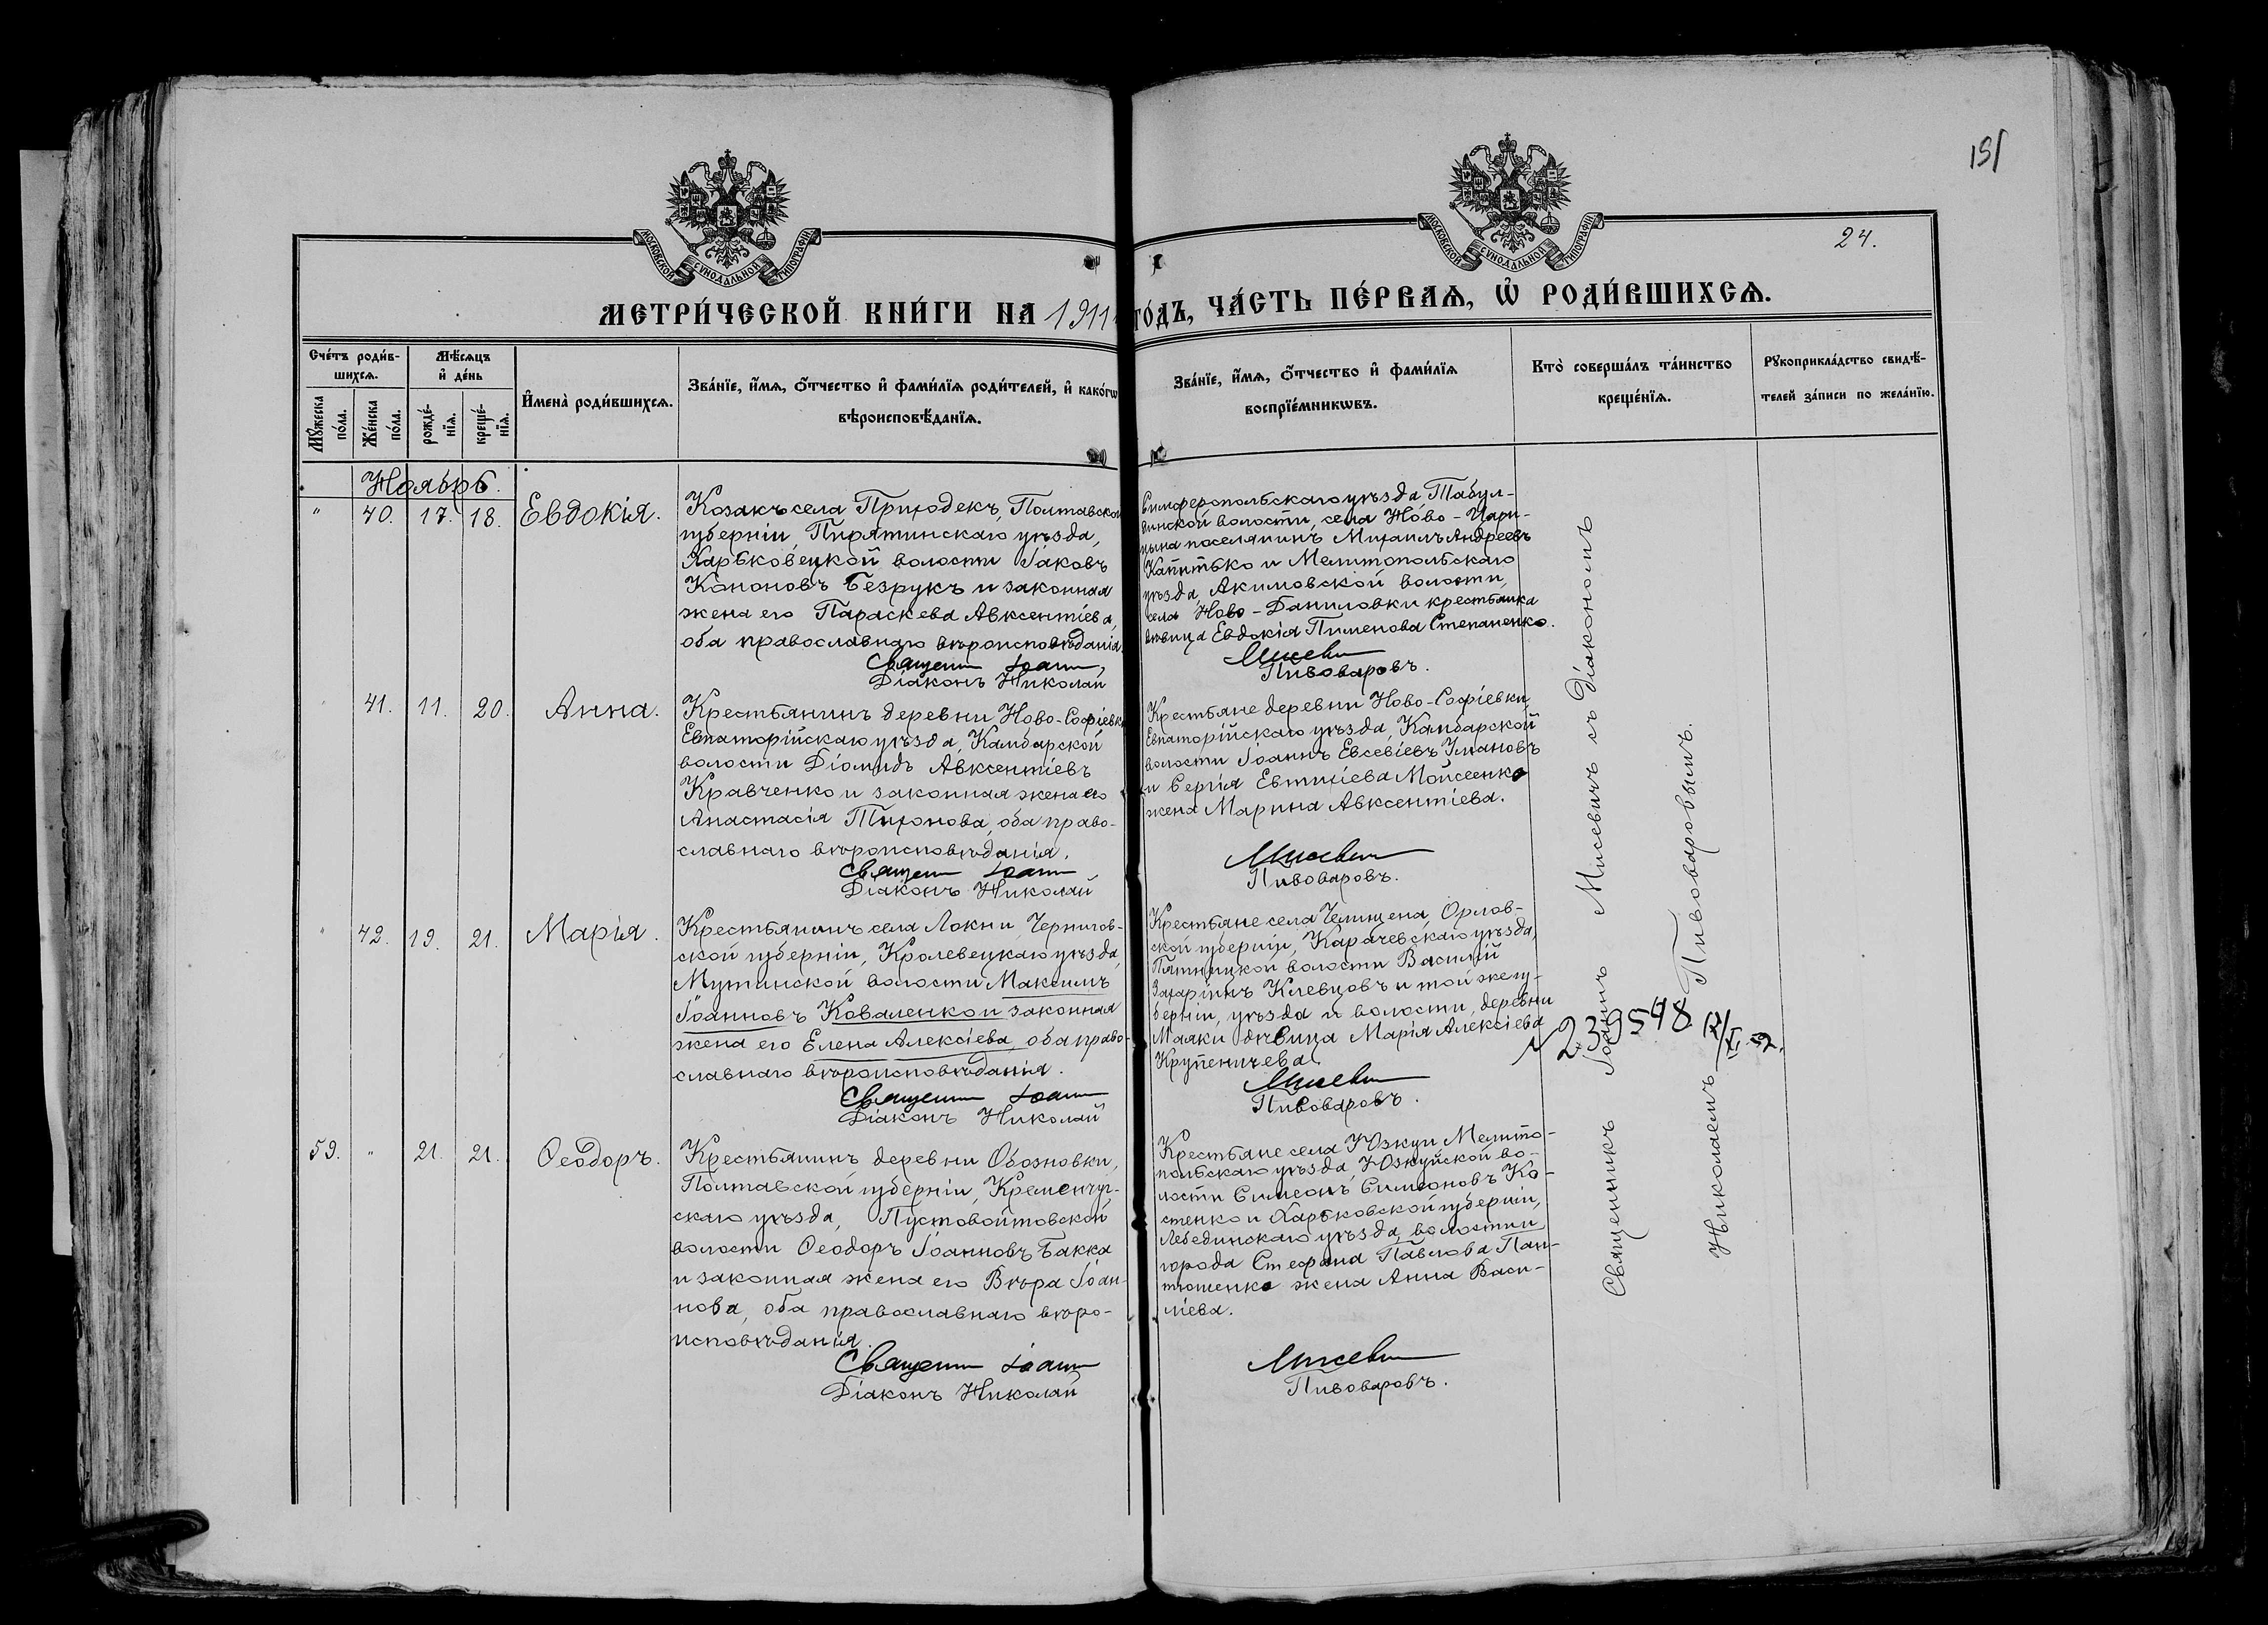 151
24.
МОСКОВСКОЙ СѴНОДАЛЬНОЙ ТИПОГРАФІИ
МОСКОВСКОЙ СѴНОДАЛЬНОЙ ТИПОГРАФІИ
МЕТРИ́ЧЕСКОЙ КНИ́ГИ НА 1911 ГО́ДЪ, ЧА́СТЬ ПЕ́РВАѦ, Ѡ҆ РОДИ́ВШИХСѦ.
Сче́тъ роди́в-
шихсѧ.
Мꙋ́жеска по́ла.
Же́нска по́ла.
Мѣ́сѧцъ
и҆ де́нь
рожде́-
нїѧ.
креще́-
нїѧ.
И҆мена̀ роди́вшихсѧ.
Зва́нїе, и҆́мѧ, ѻ҆́тчество и҆ фами́лїѧ роди́телей, и҆ како́гѡ
вѣроисповѣ́данїѧ.
Зва́нїе, и҆́мѧ, ѻ҆́тчество и҆ фами́лїѧ
воспрїе́мникѡвъ.
Кто̀ соверша́лъ та́инство
креще́нїѧ.
Рꙋкоприкла́дство свидѣ́-
телей за́писи по жела́нїю.
Ноябрь.
" 40. 17. 18. Евдокія.
Козакъ села Приходекъ, Полтавской
губерніи, Пирятинскаго уѣзда,
Харьковецкой волости Іаковъ
Кононовъ Безрукъ и законная
жена его Параскева Авксентіева,
оба православнаго вѣроисповѣданія.
Священн Іоанн
Діаконъ Николай
Симферопольскаго уѣзда, Табул-
динской волости, села Ново-Цари-
цына поселянинъ Михаилъ Андреевъ
Капитько и Мелитопольскаго
уѣзда, Акимовской волости,
села Ново-Даниловки крестьянка
дѣвица Евдокія Пименова Степаненко.
Мисеви
Пивоваровъ.
41. 11. 20. Анна.
Крестьянинъ деревни Ново-Софіевки
Евпаторійскаго уѣзда, Камбарской
волости Діомидъ Авксентіевъ
Кравченко и законная жена его
Анастасія Тихонова, оба право-
славнаго вѣроисповѣданія.
Священн Іоанн
Діаконъ Николай
Крестьяне деревни Ново-Софіевки,
Евпаторійскаго уѣзда, Камбарской
волости Іоаннъ Евсевіевъ Умановъ
и Сергія Евтихіева Мойсеенко
жена Марина Авксентіева.
Мисеви
Пивоваровъ.
" 42. 19. 21. Марія.
Крестьянинъ села Локни, Чернигов-
ской губерніи, Кролевецкаго уѣзда,
Мутинской волости Максимъ
Іоанновъ Коваленко и законная
жена его Елена Алексіева, оба право-
славнаго вѣроисповѣданія.
Священн Іоанн
Діаконъ Николай
Крестьяне села Челищена, Орлов-
ской губерніи, Карачевскаго уѣзда,
Пятницкой волости Василій
Захаріинъ Клевцовъ и той же гу-
берніи, уѣзда и волости, деревни
Маяки дѣвица Марія Алексіева
Крупеничева.
Мисеви
Пивоваровъ.
59. " 21. 21. Ѳеодоръ.
Крестьянинъ деревни Обозновки,
Полтавской губерніи, Кременчуг-
скаго уѣзда, Пустовойтовской
волости Ѳеодоръ Іоанновъ Бакка
и законная жена его Вѣра Іоан-
нова, оба православнаго вѣро-
исповѣданія.
Священн Іоанн
Діаконъ Николай
Крестьяне села Юзкуи Мелито-
польскаго уѣзда, Юзкуйской во-
лости Симеонъ Симеоновъ Ко-
стенко и Харьковской губерніи,
Лебединскаго уѣзда, волости
города Стефана Павлова Пан-
тюшенко жена Анна Васи-
ліева.
Мисеви
Пивоваровъ.
Священникъ Іоаннъ Мисевичъ съ діакономъ
Николаемъ Пивоваровымъ.
239548